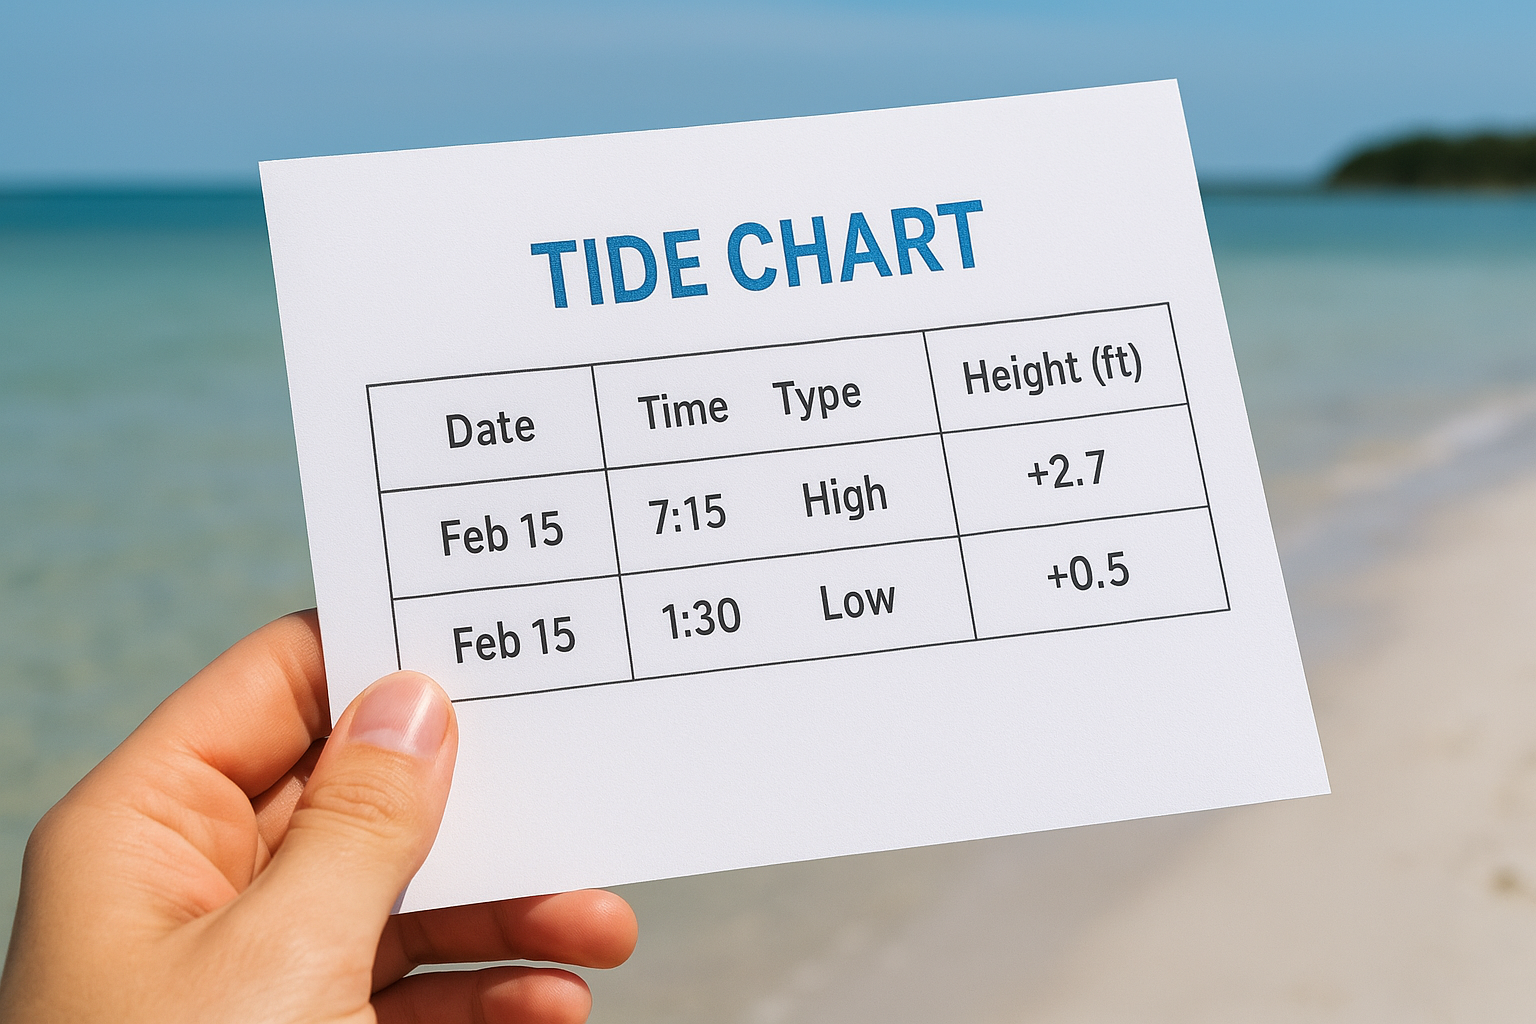 TIDE CHART
Date Time Type Height (ft)
Feb 15 7:15 High +2.7
Feb 15 1:30 Low +0.5